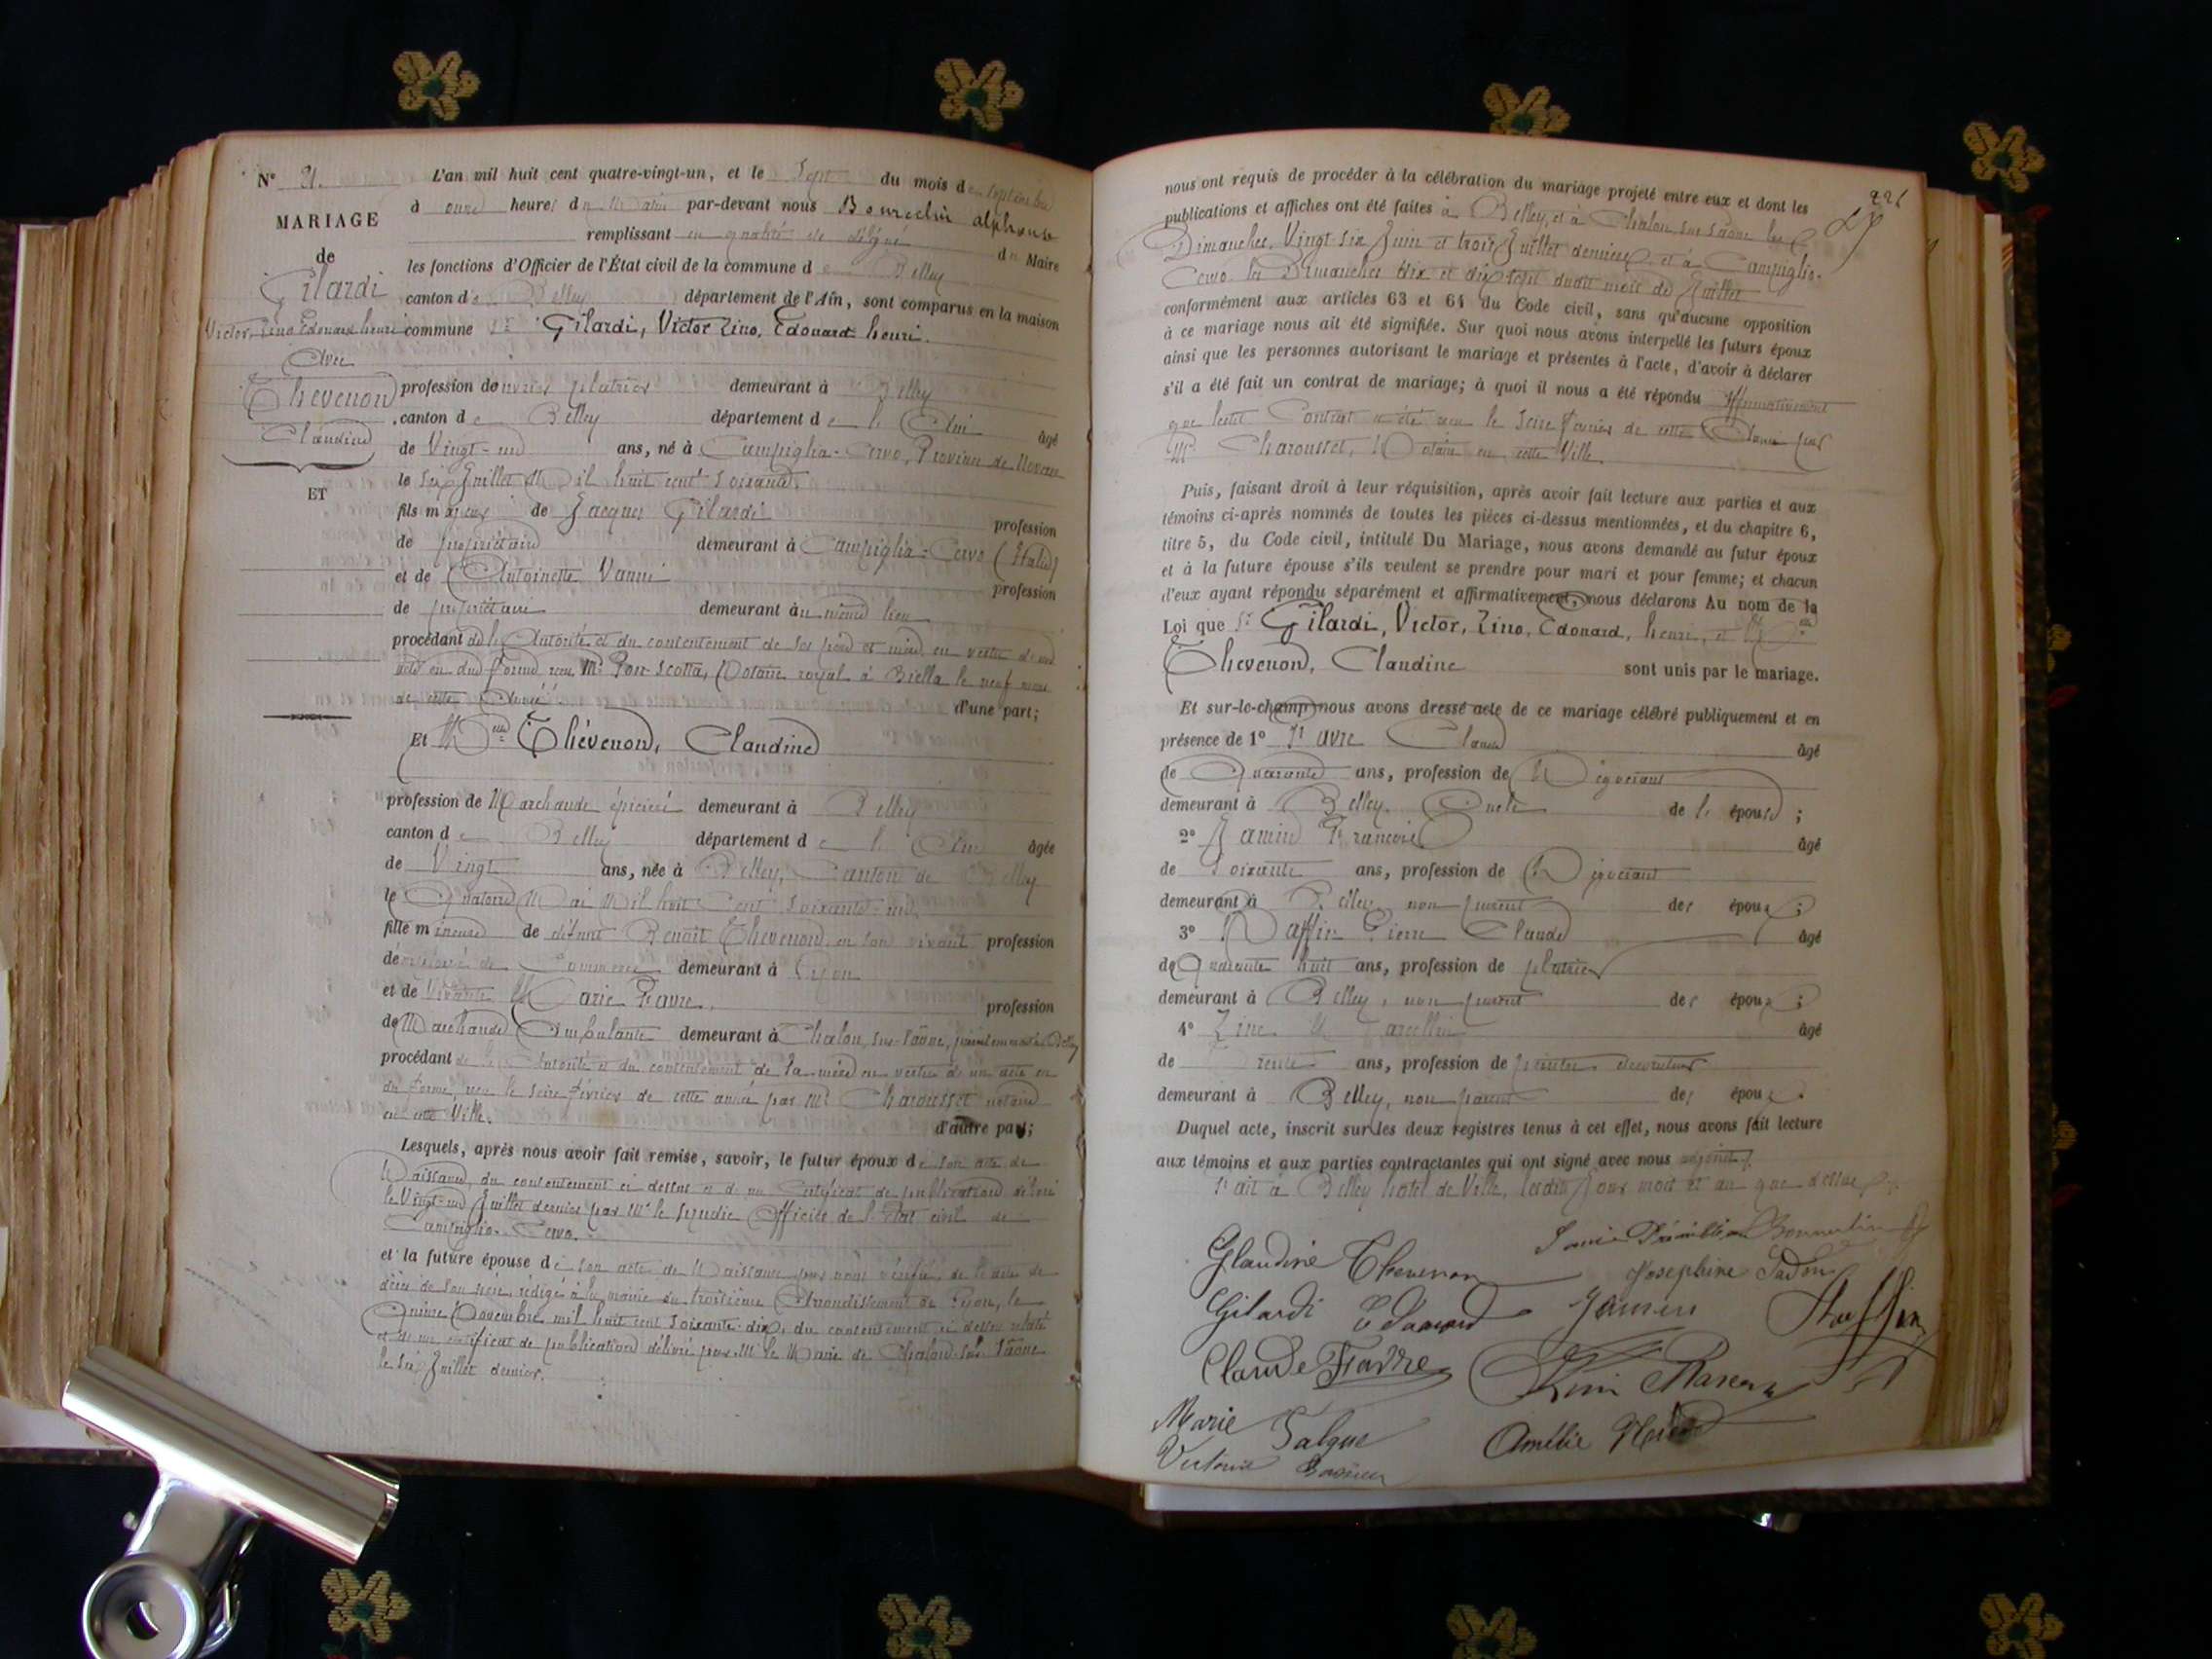 N° 21.
MARIAGE
de
Gilardi
Victor, Zino, Edouard henri
Avec
Thevenon
Claudine
ET
L'an mil huit cent quatre-vingt-un, et le Sept du mois de Septembre
à onze heures du Matin par-devant nous Bourechin alphonse
remplissant en qualité de délégué du Maire
les fonctions d'Officier de l'État civil de la commune de Belley
canton de Belley département de l'Ain, sont comparus en la maison
commune Sr Gilardi, Victor Zino, Edouard henri.
profession d'ouvrier platrier demeurant à Belley
canton de Belley département de l'Ain âgé
de Vingt-un ans, né à Campiglia-Cervo, Province de Novare
le six Juillet Mil huit cent soixante.
fils majeur de Jacques Gilardi profession
de propriétaire demeurant à Campiglia-Cervo (Italie)
et de Antoinette Vanni profession
de propriétaire demeurant au même lieu
procédant de l'Autorité et du consentement de ses père et mère en vertu d'un
acte en due forme reçu Me Pon-Scotta, Notaire royal à Biella le neuf mars
de cette année d'une part;
Et Melle Thévenon, Claudine
profession de Marchande épicière demeurant à Belley
canton de Belley département de l'Ain âgée
de Vingt ans, née à Belley, Canton de Belley
le Quatorze Mai Mil huit Cent Soixante-un.
fille mineure de défunt Benoît Thévenon en son vivant profession
d'employé de Commerce demeurant à Lyon
et de vivante Marie Favre, profession
de Marchande Ambulante demeurant à Chalon-sur-Saône,
procédant de l'Autorité et du consentement de sa mère en vertu d'un acte en
due forme, reçu le seize février de cette année par Me Charousset notaire
en cette Ville. d'autre part;
Lesquels, après nous avoir fait remise, savoir, le futur époux de son acte de
Naissance, du consentement ci dessus et d'un Certificat de publication délivré
le Vingt-un Juillet dernier par Mr le Syndic Officier de l'état civil de
Campiglia-Cervo.
et la future épouse de son acte de Naissance par nous vérifié, de l'acte de
décès de son père, rédigé à la mairie du troisième Arrondissement de Lyon, le
Quinze Novembre mil huit cent soixante-dix, du consentement ci dessus relaté
et d'un certificat de publication délivré par Mr le Maire de Chalon-sur-Saône
le six Juillet dernier.
221
nous ont requis de procéder à la célébration du mariage projeté entre eux et dont les
publications et affiches ont été faites à Belley et à Chalon-sur-Saône les
Dimanches, Vingt-six Juin et trois Juillet derniers, et à Campiglia-
Cervo les Dimanches dix et dix sept dudit mois de Juillet
conformément aux articles 63 et 64 du Code civil, sans qu'aucune opposition
à ce mariage nous ait été signifiée. Sur quoi nous avons interpellé les futurs époux
ainsi que les personnes autorisant le mariage et présentes à l'acte, d'avoir à déclarer
s'il a été fait un contrat de mariage; à quoi il nous a été répondu affirmativement
que ledit Contrat a été reçu le seize février de cette Année par
Me Charousset, Notaire en cette Ville.
Puis, faisant droit à leur réquisition, après avoir fait lecture aux parties et aux
témoins ci-après nommés de toutes les pièces ci-dessus mentionnées, et du chapitre 6,
titre 5, du Code civil, intitulé Du Mariage, nous avons demandé au futur époux
et à la future épouse s'ils veulent se prendre pour mari et pour femme; et chacun
d'eux ayant répondu séparément et affirmativement, nous déclarons Au nom de la
Loi que Sr Gilardi, Victor, Zino, Edouard, henri, et Melle
Thevenon, Claudine sont unis par le mariage.
Et sur-le-champ nous avons dressé acte de ce mariage célébré publiquement et en
présence de 1° Favre Claude âgé
de Quarante ans, profession de Négociant
demeurant à Belley Oncle de l'épouse;
2° Jamin François âgé
de Soixante ans, profession de Négociant
demeurant à Belley non parent des époux;
3° Raffin Pierre Claude âgé
de Quarante huit ans, profession de platrier
demeurant à Belley, non parent des époux;
4° Zino Marcellin âgé
de Trente ans, profession de peintre décorateur
demeurant à Belley, non parent des époux.
Duquel acte, inscrit sur les deux registres tenus à cet effet, nous avons fait lecture
aux témoins et aux parties contractantes qui ont signé avec nous
Fait à Belley hôtel de Ville, lesdits Jour mois et an que dessus
Claudine Thevenon
Josephine
Gilardi Edouard Jamin Raffin
Claude Favre
Marie Salque Amélie
Victorine